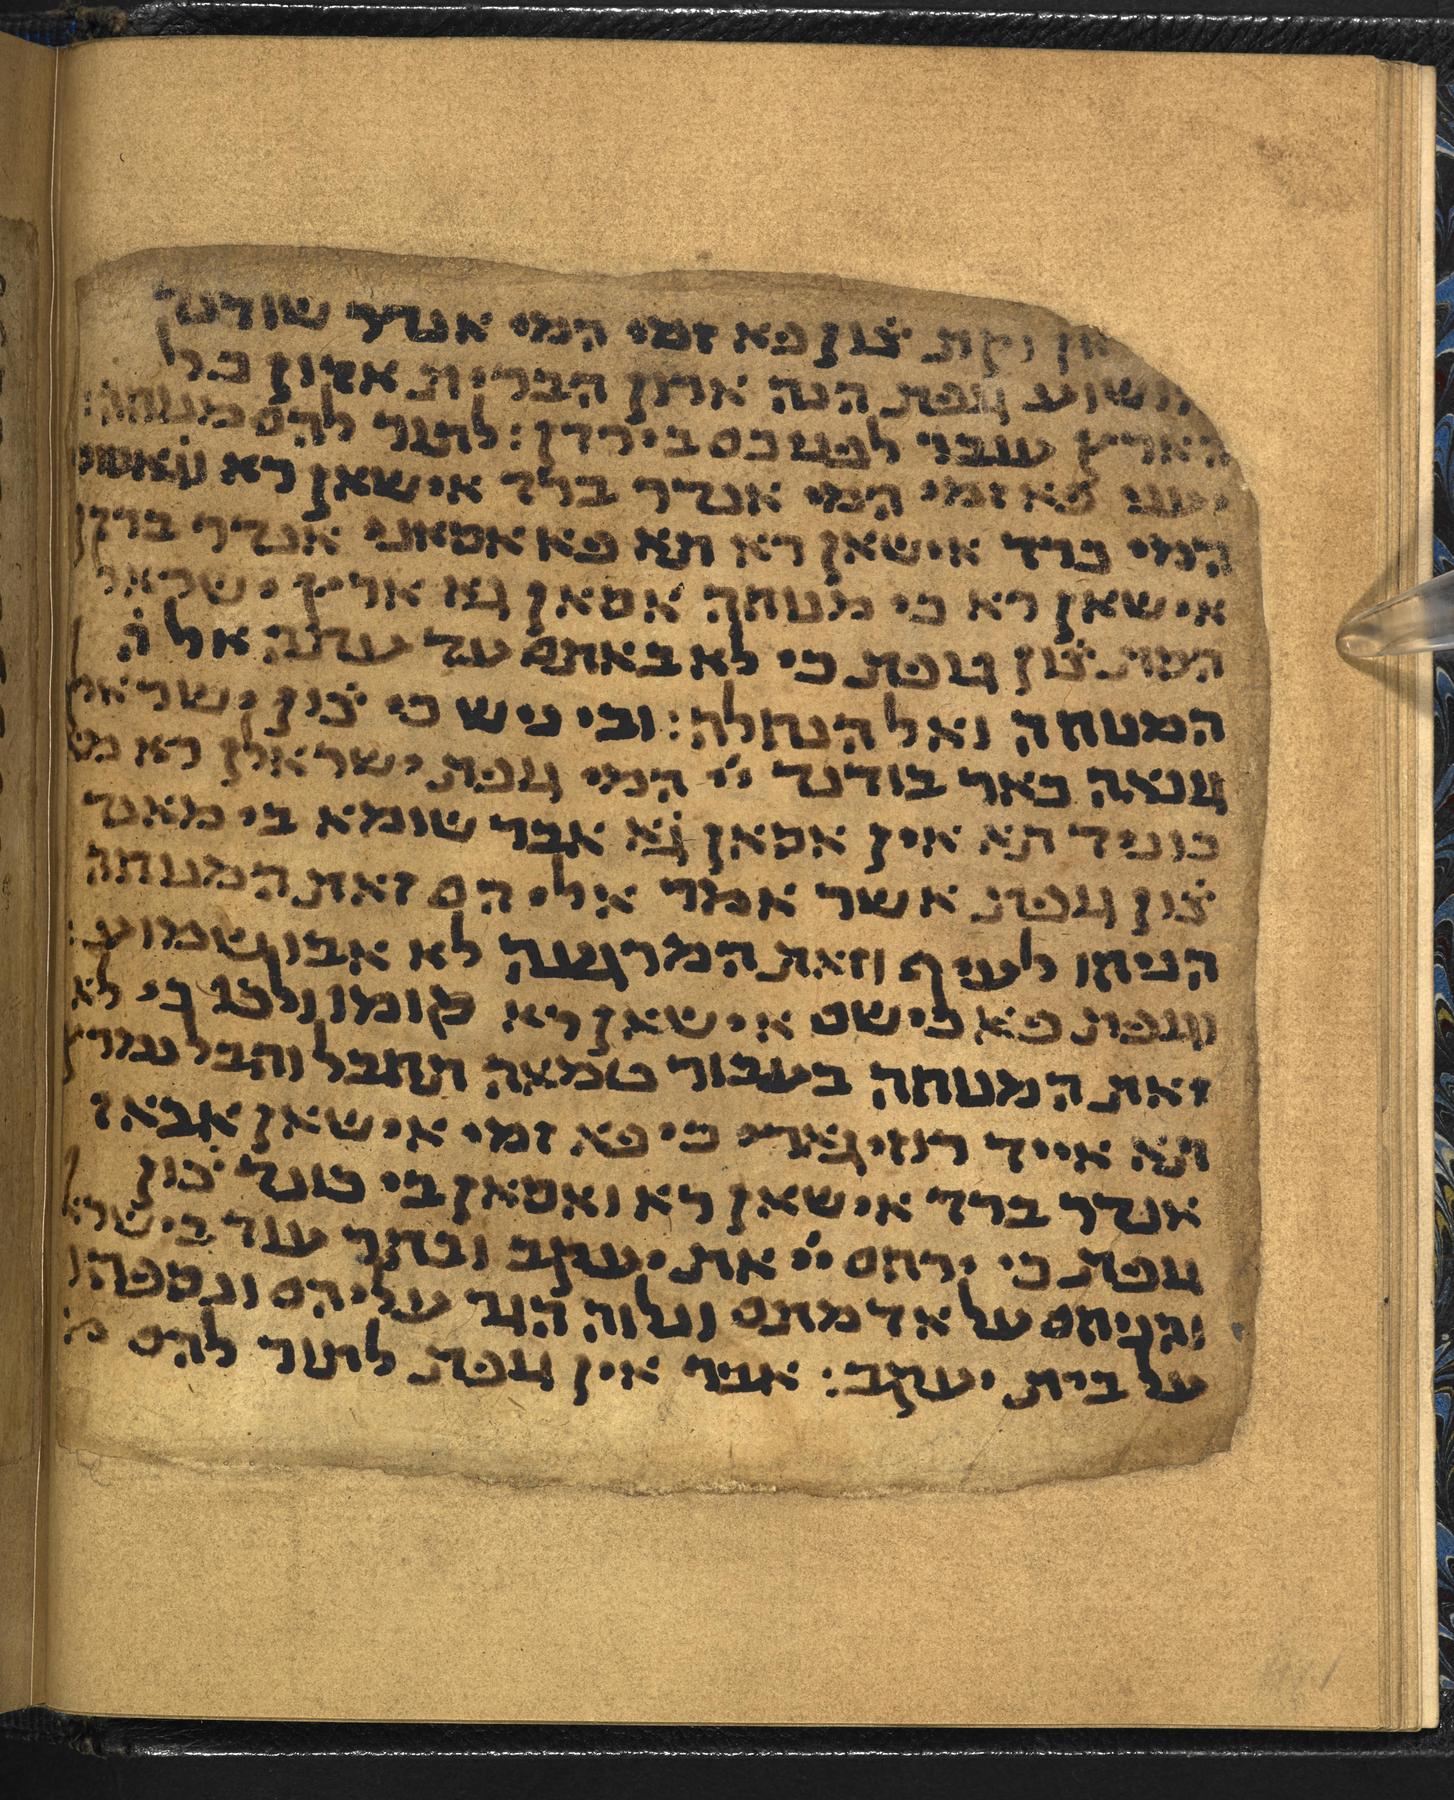 וקת צׄון פא זמי המי אנדר שודנד
הושוע גופת הנה ארון הברית אדון כל
הארץ עובר לפניכם בירדן : לתור להם מנוחה :
יעני פא זמי המי אנדר ברד אישאן רא
המי ברד אישאן רא תא פא אמאני אנדר בורדן
אישאן רא כי מנוחה אמאן פא ארץ ישראל
המת צׄון גופת כי לא באתם עד עתה אל
המנוחה ואל הנחלה : ובי ניש כי צׄון ישראל
גונאה כאר בודנד ייי המי גופת ישראלן רא
כוניד תא אין אמאן פא אבר שומא בי מאנד
צׄון גופת אשר אמר אליהם זאת המנוחה
הניחו לעיף וזאת המרגעה לא אבו שמוע :
וגופת פא כישם אישאן רא קומו ולכו כי לא
זאת המנוחה בעבור טמאה תחבל וחבל נמרץ
תא אייד רוזיגארי כי פא זמי אישאן אבאז
אנדר ברד אישאן רא ואמאן בי כונד צׄון
גופת כי ירחם ייי את יעקב ובחר עוד בישראל
והניחם על אדמתם ונלוה הגר עליהם ונספחו
על בית יעקב : אבר אין גופת לתור להם